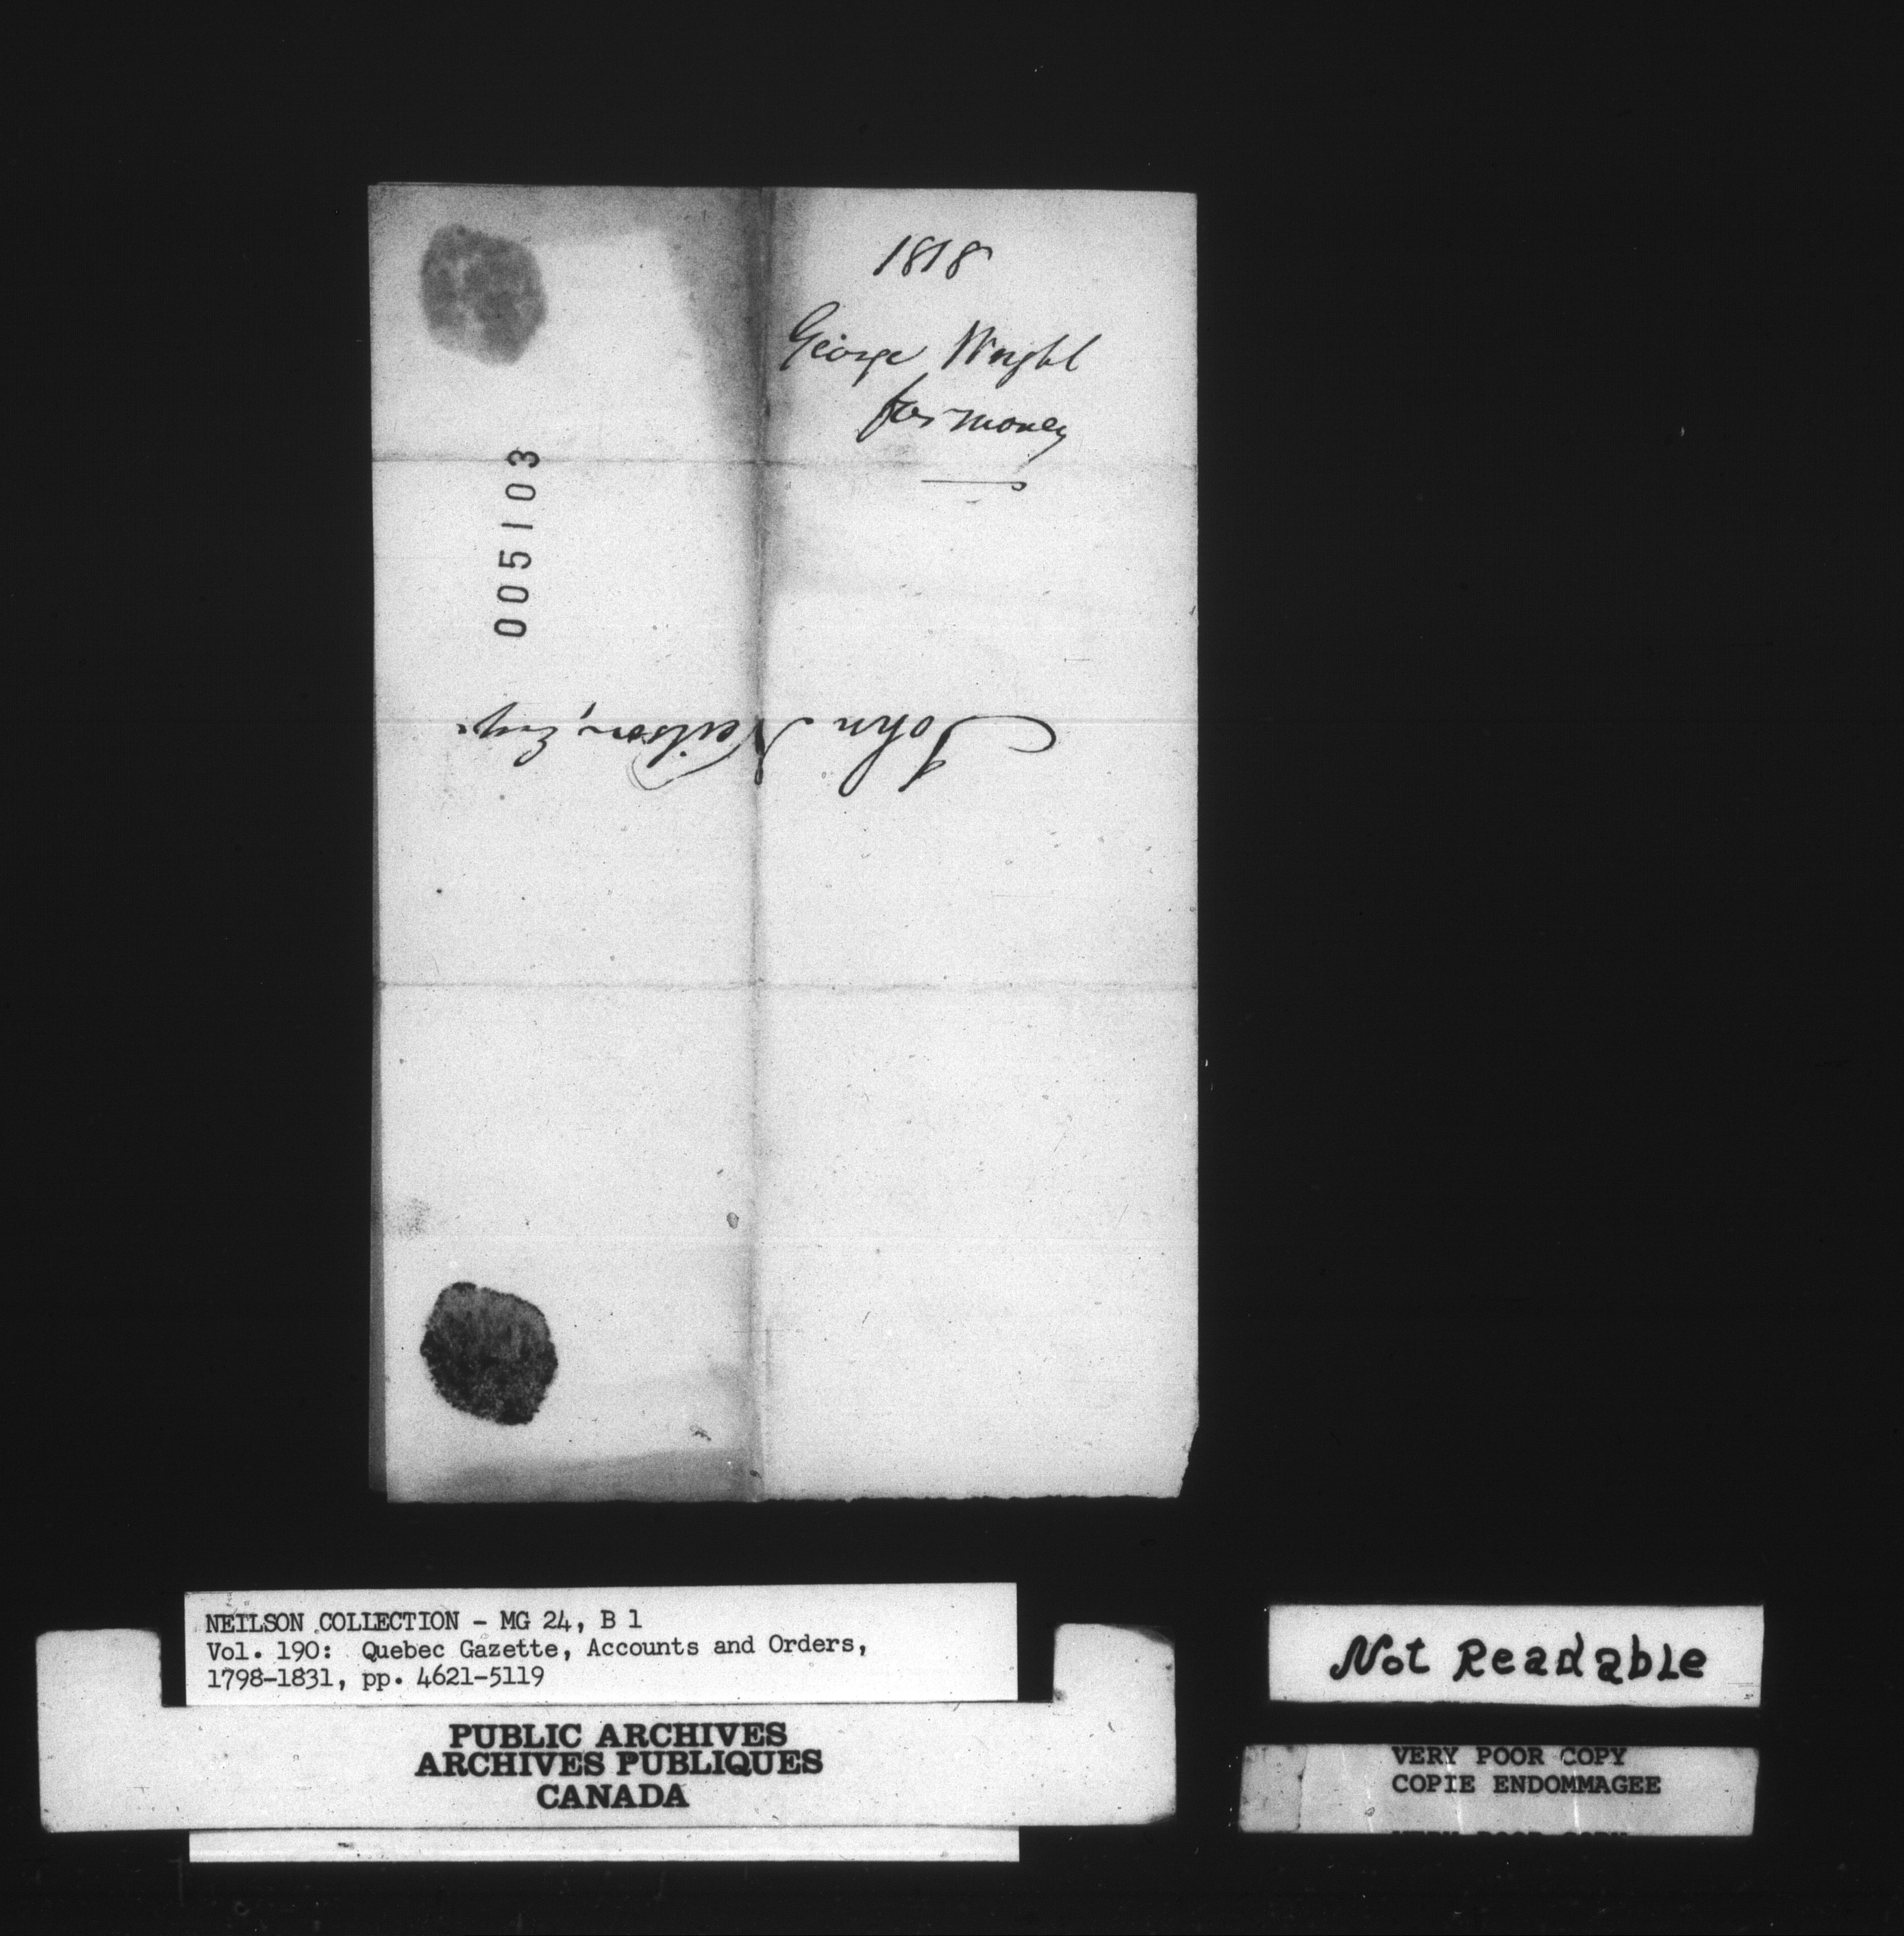 1818
George Wright
for money
005103
John Neilson, Esqr.
NEILSON COLLECTION - MG 24, B 1
Vol. 190: Quebec Gazette, Accounts and Orders,
1798-1831, pp. 4621-5119
PUBLIC ARCHIVES
ARCHIVES PUBLIQUES
CANADA
Not Readable
VERY POOR COPY
COPIE ENDOMMAGEE
VERY POOR COPY